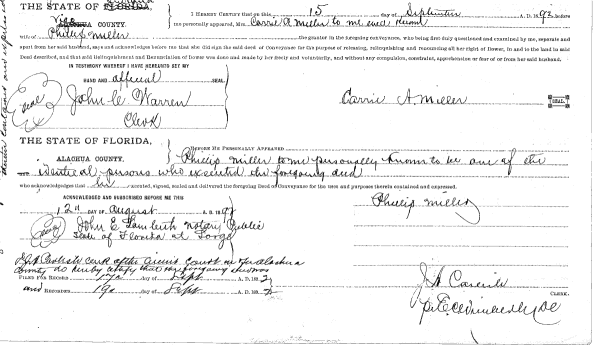 THE STATE OF FLORIDA,
ALACHUA COUNTY.
I HEREBY CERTIFY that on this 15 day of September A. D. 1893, before
me personally appeared, Carrie A Miller to me well known
wife of Philip Miller the grantor in the foregoing conveyance, who being first duly questioned and examined by me, separate and
apart from her said husband, says and acknowledges before me that she did sign the said deed of Conveyance for the purpose of releasing, relinquishing and renouncing all her right of Dower, in and to the land in said
Deed described, and that said Relinquishment and Renunciation of Dower was done and made by her freely and voluntarily, and without any compulsion, constraint, apprehension or fear of or from her said husband.
IN TESTIMONY WHEREOF I HAVE HEREUNTO SET MY
HAND AND official SEAL
Seal
John C Warren
Clerk
Carrie A. Miller
SEAL.
THE STATE OF FLORIDA,
ALACHUA COUNTY.
BEFORE ME PERSONALLY APPEARED
Phillip Miller to me personally known to be one of the
identical persons who executed the foregoing deed
who acknowledges that he executed, signed, sealed and delivered the foregoing Deed of Conveyance for the uses and purposes therein contained and expressed.
ACKNOWLEDGED AND SUBSCRIBED BEFORE ME THIS
12th DAY OF August A. D. 189
John E Lambeth Notary Public
State of Florida at Large
Phillip Miller
clerk of the Circuit Court in & for Alachua
County do hereby certify that the foregoing
FILED FOR RECORD day of Sept A. D. 189
and RECORDED 19th day of Sept A. D. 189
J A Carlisle
CLERK.